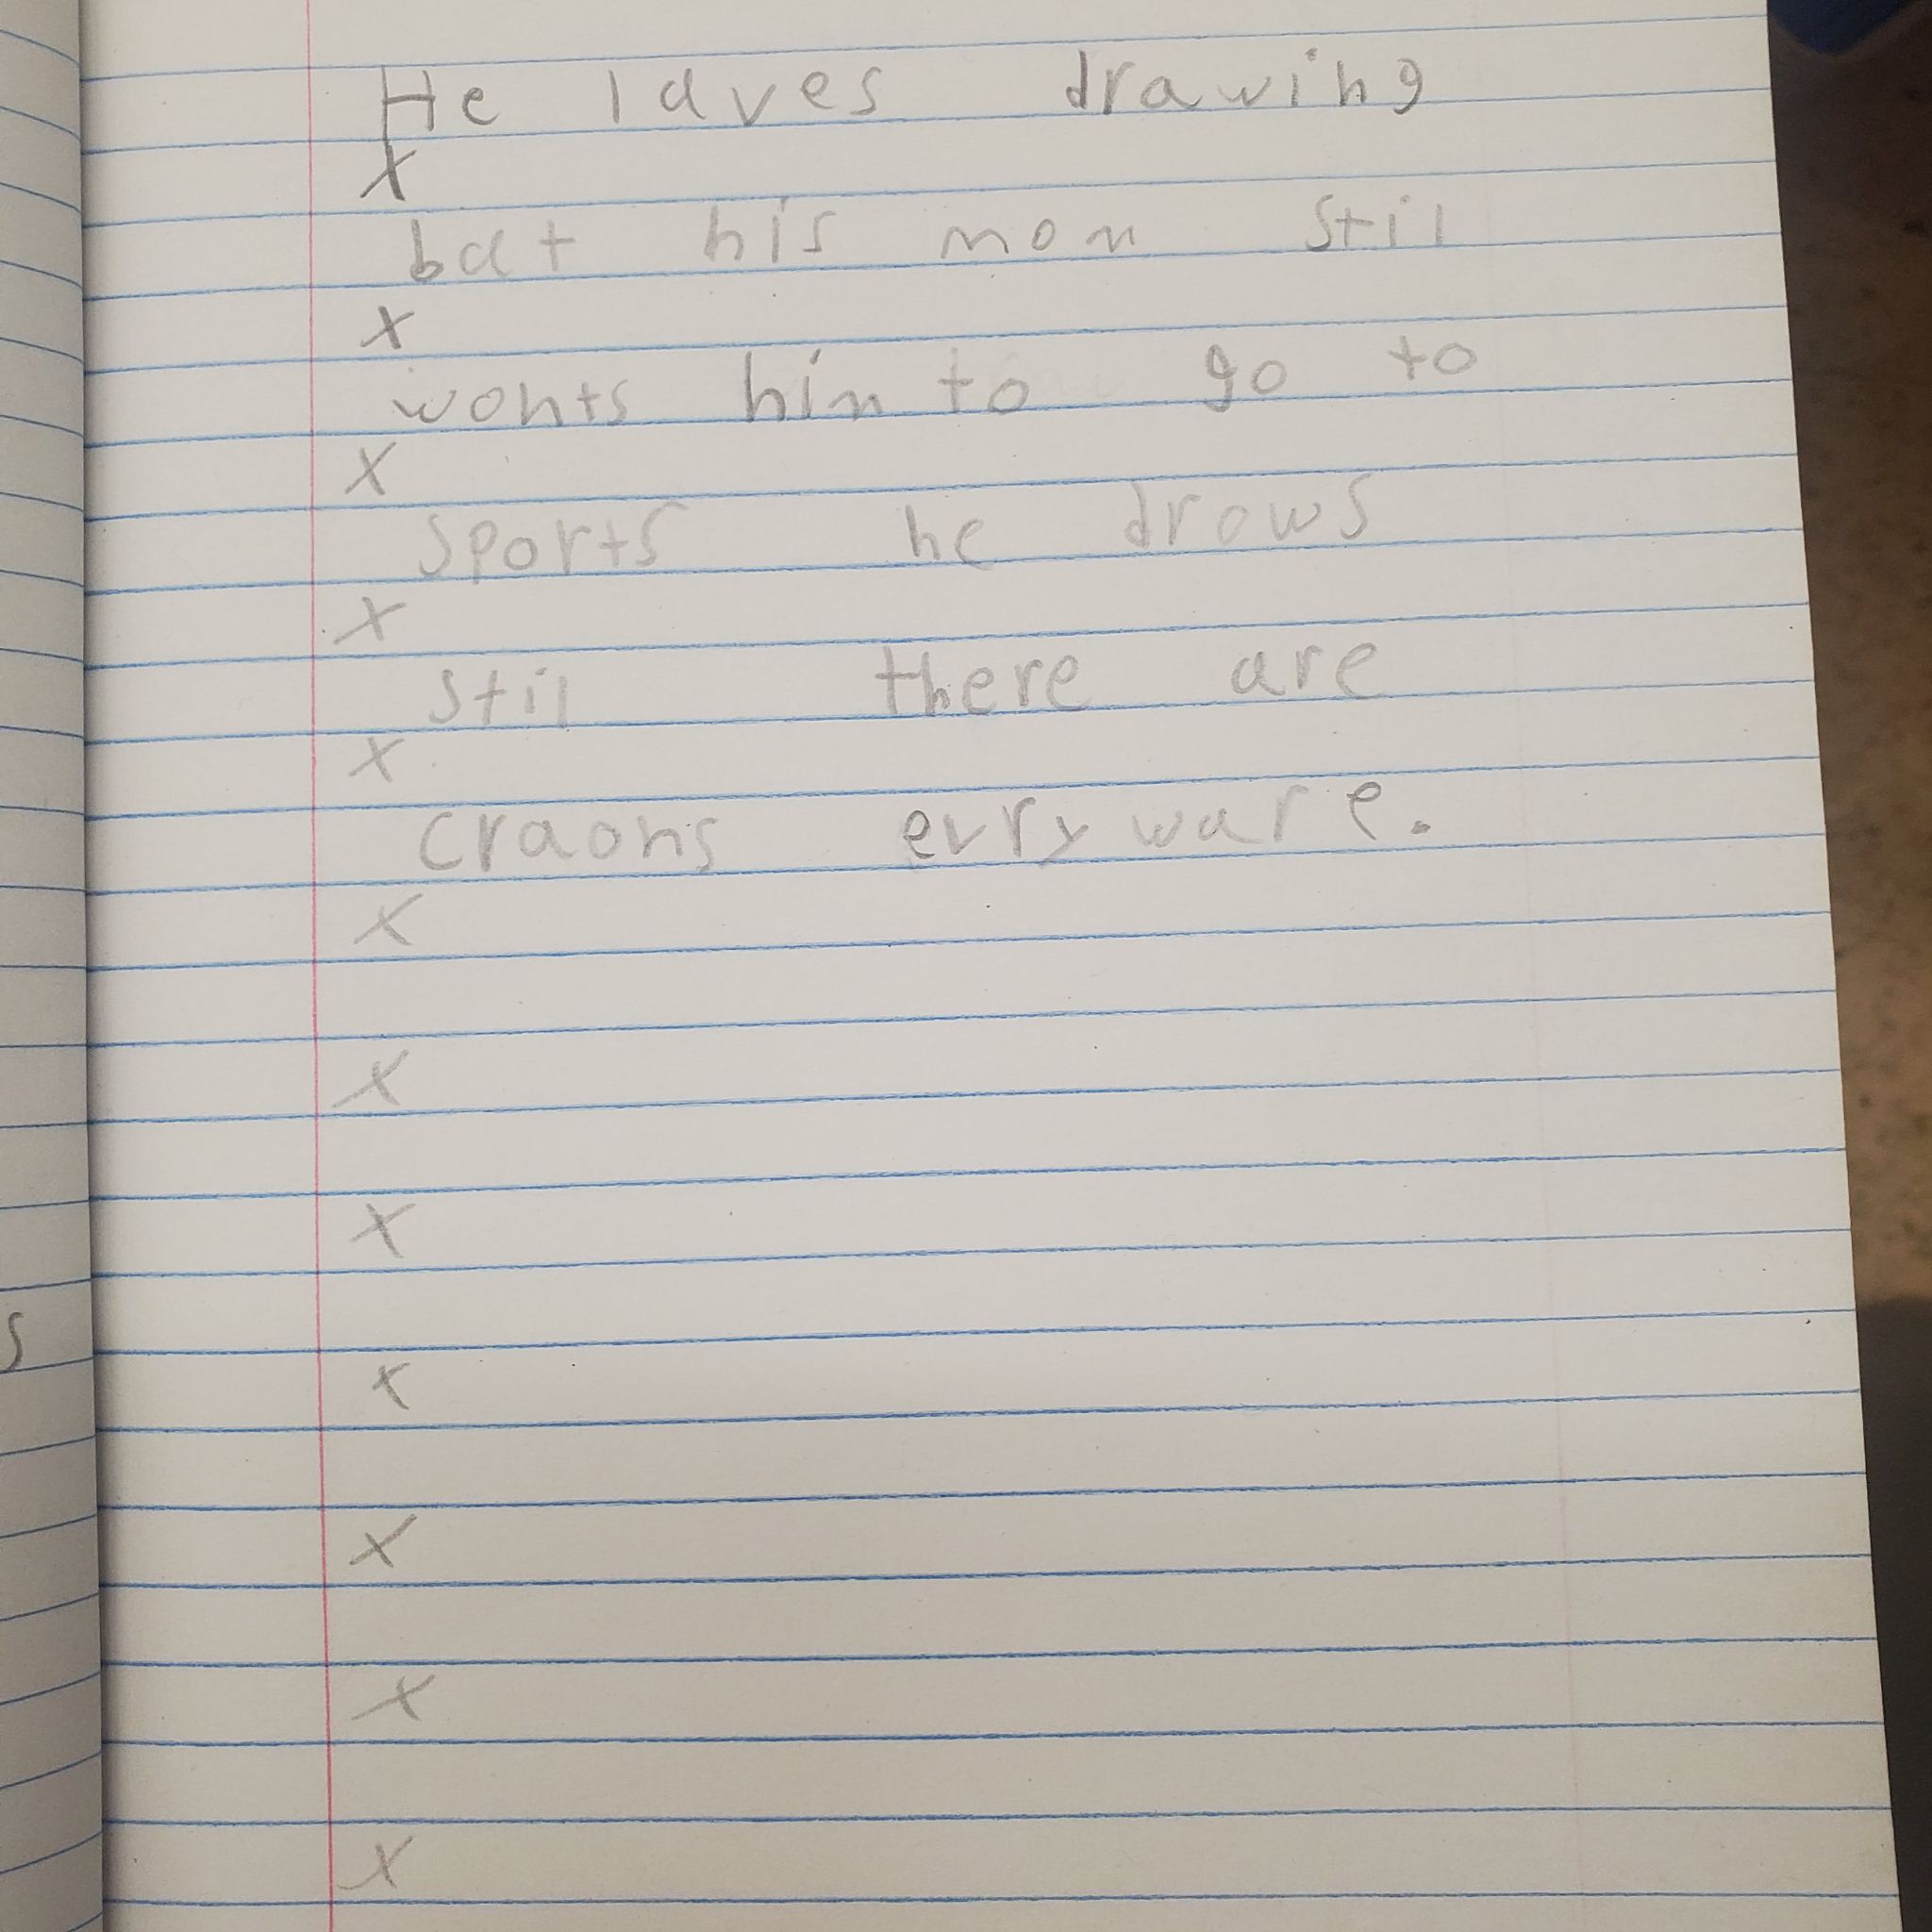 He laves drawing
X
bat his mom stil
X
wonts him to go to
X
sports he drows
X
stil there are
X
craons evry ware.
X
X
X
X
X
X
X
s